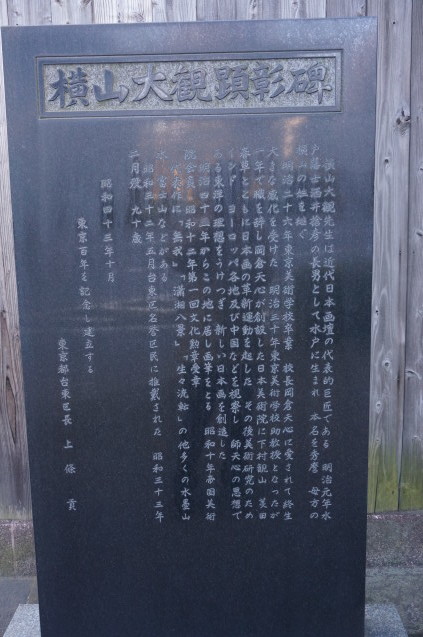 横山大観顕彰碑
横山大観先生は近代日本画壇の代表的巨匠である 明治元年水
戸藩士酒井捨彦の長男として水戸に生まれ 本名を秀麿 母方の
横山の姓を継ぐ
明治二十六年東京美術学校卒業 校長岡倉天心に愛されて終生
大きな感化を受けた 明治三十年東京美術学校助教授となったが
一年で職を辞し岡倉天心が創設した日本美術院に下村観山 菱田
春草とともに日本画の革新運動を起した その後美術研究のため
インド ヨーロッパ各地及び中国などを視察し 師天心の思想で
ある東洋の理想をうけつぎ 新しい日本画を創造した
明治四十二年からこの地に居し画筆をとる 昭和十年帝国美術
院会員 昭和十二年第一回文化勲章受章
代表作に「無我」「瀟湘八景」「生々流転」の他多くの水墨山
水 富士山などがある
昭和三十二年五月台東区名誉区民に推戴された 昭和三十三年
二月歿 九十歳
昭和四十三年十月
東京百年を記念し建立する
東京都台東区長 上條 貢